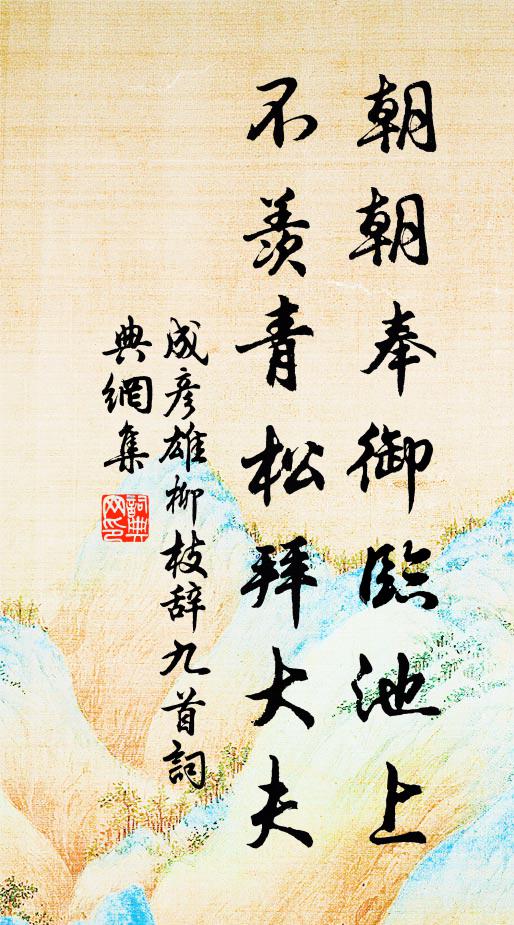 朝朝奉御臨池上
不羨青松拜大夫
成彥雄柳枝辞九首詞
典網集
詞典
网印